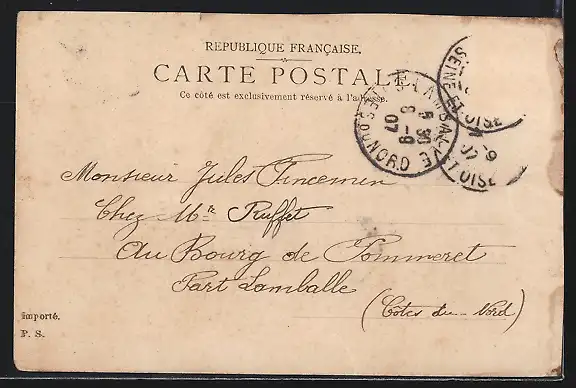 REPUBLIQUE FRANÇAISE.
CARTE POSTALE
Ce côté est exclusivement réservé à l'adresse.
LAMBALLE
5 30
8 -9
07
CÔTES DU NORD
SEINE ET OISE
-9
07
ET OISE
Monsieur Jules Fincemin
Chez Mr Ruffet
Au Bourg de Pommeret
Part Lamballe
(Côtes du Nord)
Importé.
P. S.